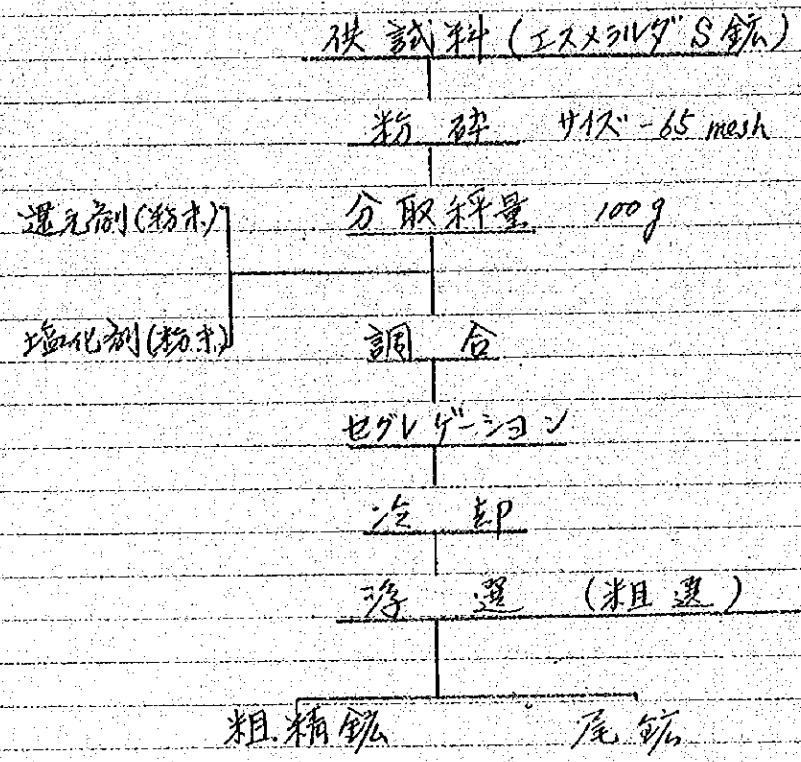 供試料(エスメラルダS鉱)
粉砕 サイズ -65 mesh
還元剤(粉末) 分取秤量 100g
塩化剤(粉末) 調合
セグレゲーション
冷却
浮選 (粗選)
粗精鉱 尾鉱